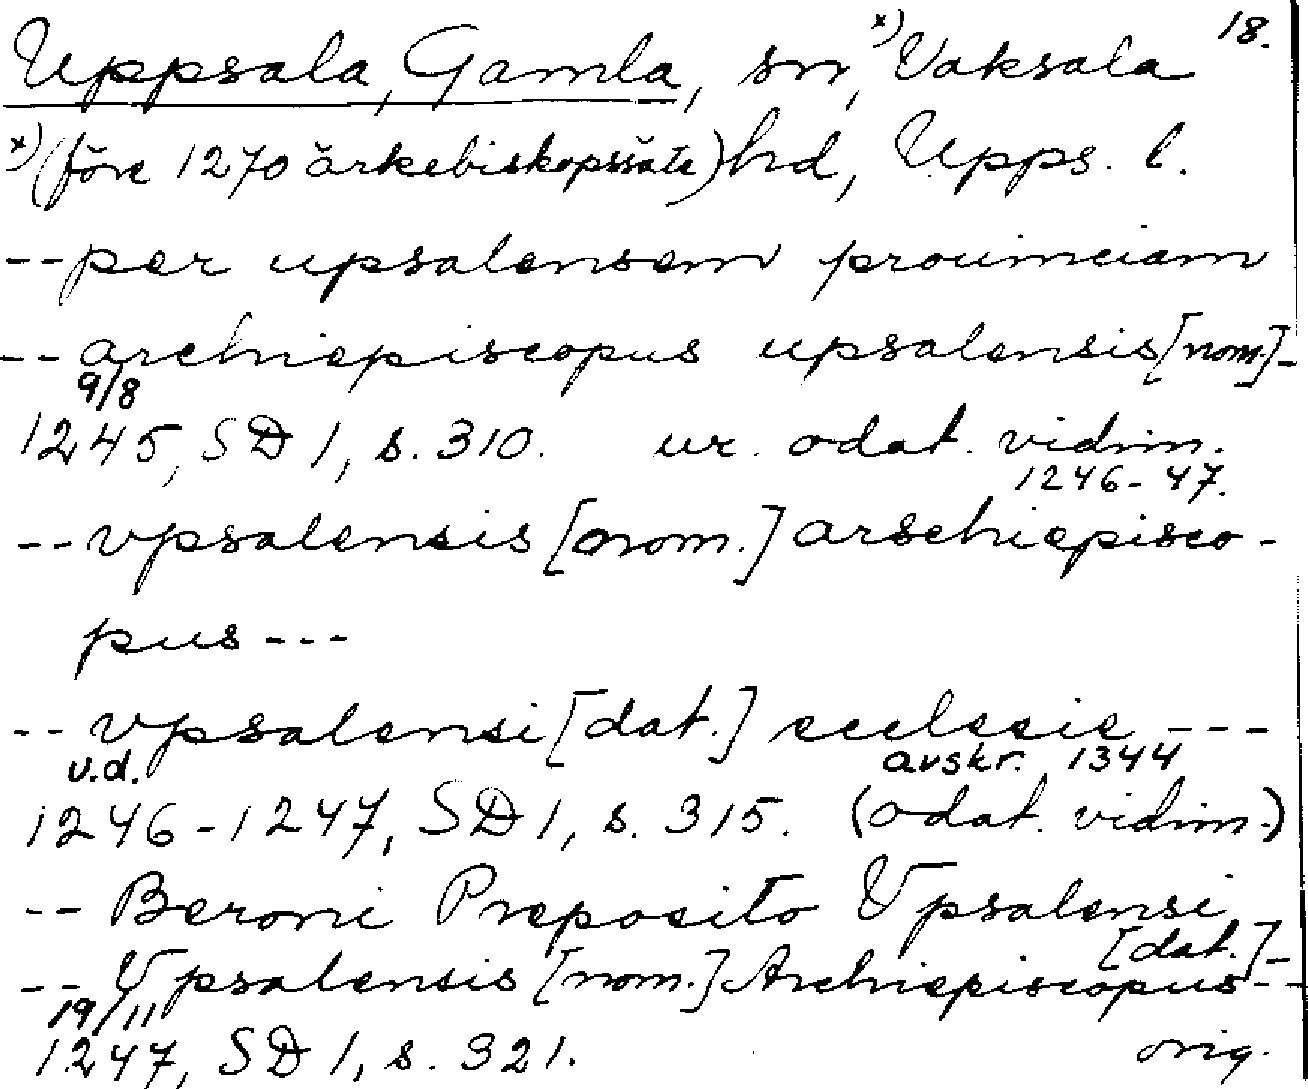 18.
Uppsala, Gamla, sn, x) Vaksala
x) (före 1270 ärkebiskopssäte) hd, Upps. l.
-- per upsalensem prouinciam
-- archiepiscopus upsalensis [nom.] -
9/8
1245, SD 1, s. 310. ur odat. vidim.
1246-47.
-- vpsalensis [nom.] arschiepisco-
pus ---
-- vpsalensi [dat.] ecclesie ---
u.d. avskr. 1344
1246-1247, SD 1, s. 315. (odat. vidim.)
-- Beroni Preposito Vpsalensi
[dat.] -
-- Vpsalensis [nom.] Archiepiscopus --
19/11
1247, SD 1, s. 321. orig.